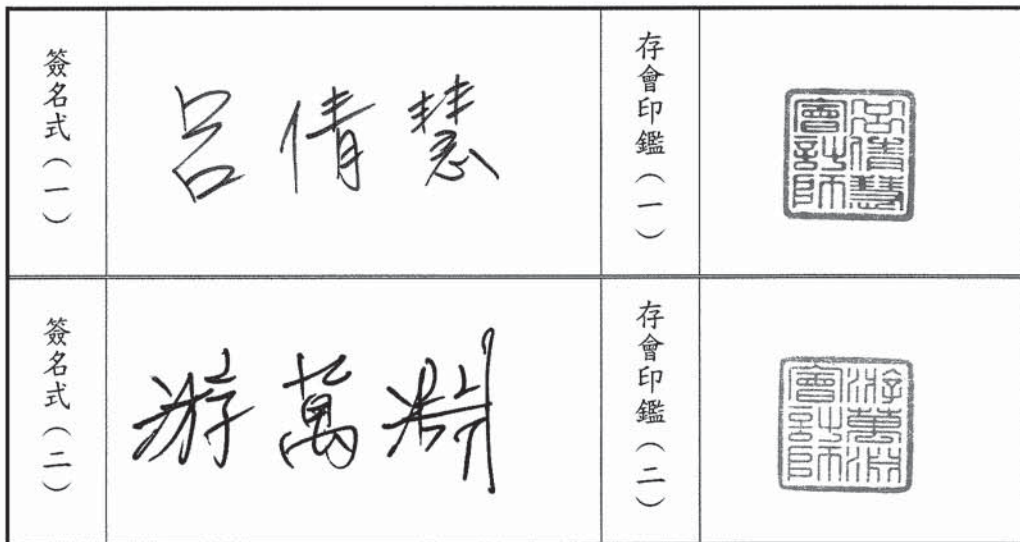 簽名式（一）
呂倩慧
存會印鑑（一）
呂倩慧
會計師
簽名式（二）
游萬淵
存會印鑑（二）
游萬淵
會計師